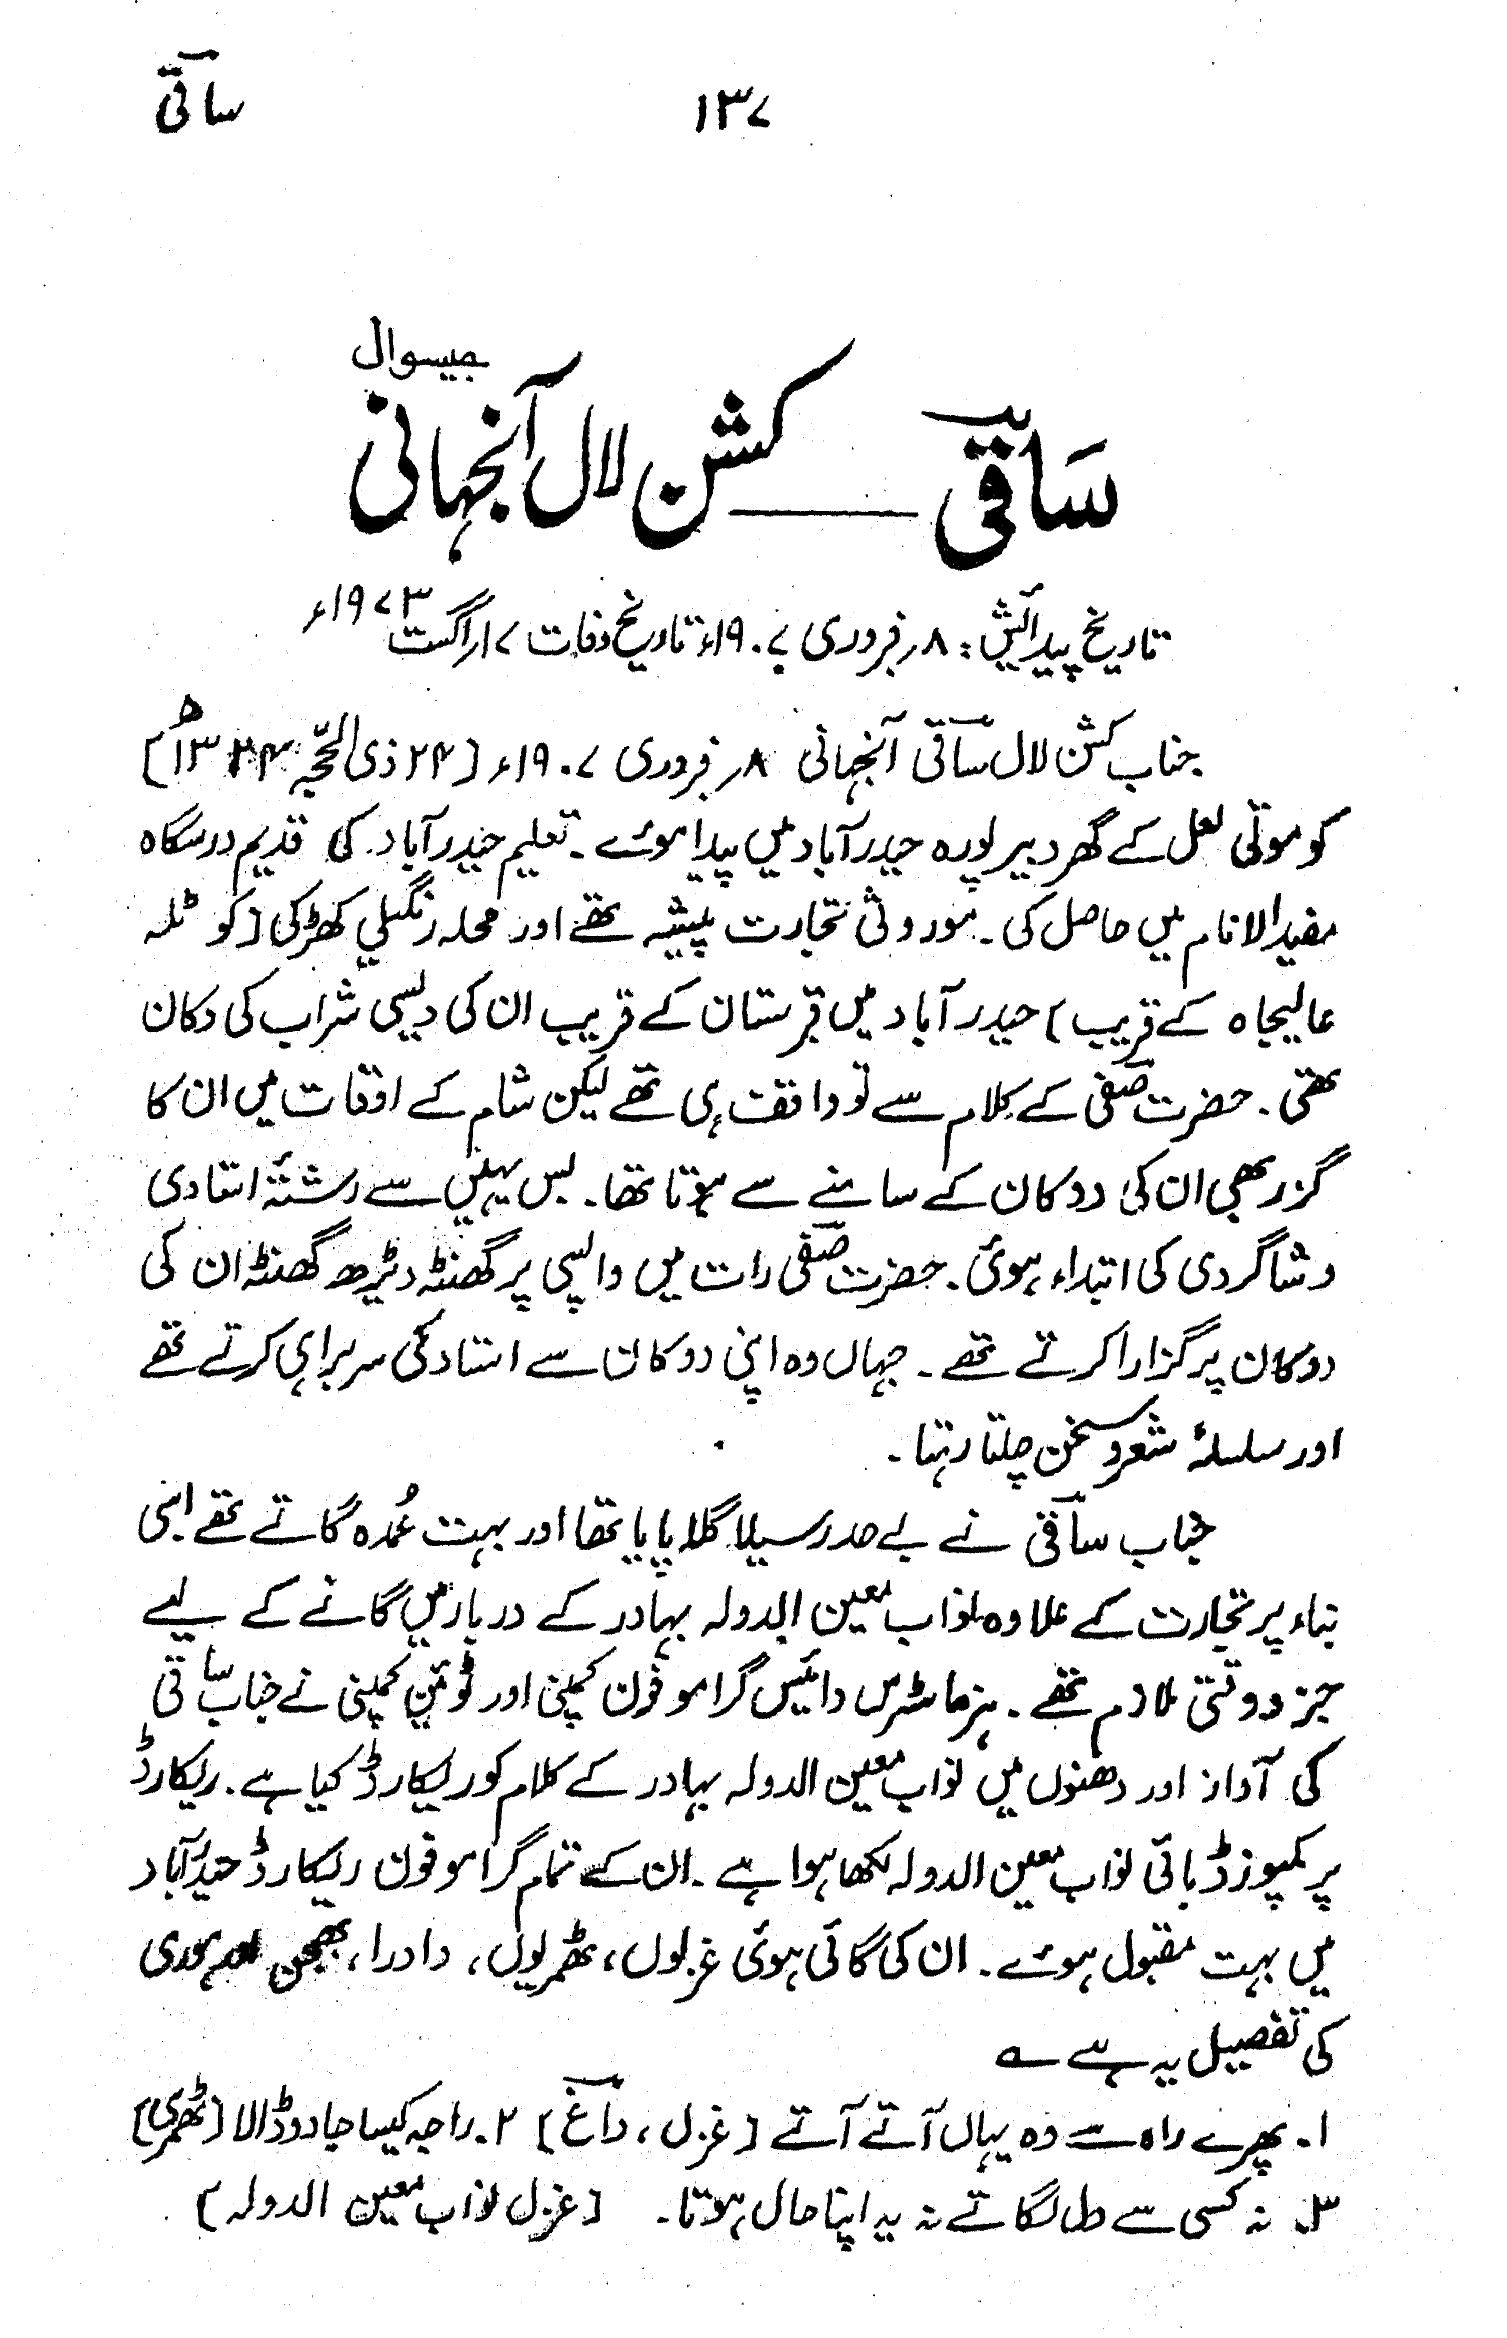 ۱۳۷
ساقیؔ
جیسوال
ساقیؔ ــــــ کشن لال آنجہانی
تاریخ پیدائش: ۸؍ فروری ۱۹۰۷ء تاریخ وفات ۱۷؍ اگست ۱۹۷۳ء
جناب کشن لال ساقیؔ آنجہانی ۸؍ فروری ۱۹۰۷ء [۲۴ ذی الحجہ ۱۳۲۴ھ]
کو موتی لعل کے گھر دبیر پورہ حیدرآباد میں پیدا ہوئے۔ تعلیم حیدرآباد کی قدیم درسگاہ
مفید الانام میں حاصل کی۔ موروثی تجارت پیشہ تھے اور محلہ رنگیلی کھڑکی [کوٹلہ
عالیجاہ کے قریب] حیدرآباد میں قبرستان کے قریب ان کی دیسی شراب کی دکان
تھی۔ حضرت صفیؔ کے کلام سے تو واقف ہی تھے لیکن شام کے اوقات میں ان کا
گزر بھی ان کی دوکان کے سامنے سے ہوتا تھا۔ بس یہیں سے رشتۂ استادی
و شاگردی کی ابتداء ہوئی۔ حضرت صفیؔ رات میں واپسی پر گھنٹہ دیڑھ گھنٹہ ان کی
دوکان پر گزارا کرتے تھے۔ جہاں وہ اپنی دوکان سے استاد کی سربراہی کرتے تھے
اور سلسلۂ شعر و سخن چلتا رہتا۔
جناب ساقیؔ نے بے حد رسیلا گلا پایا تھا اور بہت عُمدہ گاتے تھے اسی
بناء پر تجارت کے علاوہ نواب معین الدولہ بہادر کے دربار میں گانے کے لیے
جز وقتی ملازم تھے۔ ہز ماسٹرس وائیس گراموفون کمپنی اور ٹوئین کمپنی نے جناب ساقی
کی آواز اور دھنوں میں نواب معین الدولہ بہادر کے کلام کو ریکارڈ کیا ہے۔ ریکارڈ
پر کمپوزڈ بائی نواب معین الدولہ لکھا ہوا ہے۔ ان کے تمام گراموفون ریکارڈ حیدرآباد
میں بہت مقبول ہوئے۔ ان کی گائی ہوئی غزلوں، ٹھمریوں، دادرا، بھجن اور ہوری
کی تفصیل یہ ہے ؎
۱۔ پھرے راہ سے وہ یہاں آتے آتے [غزل، داغؔ] ۲۔ راجہ کیسا جادو ڈالا [ٹھمری]
۳۔ نہ کسی سے دل لگاتے نہ یہ اپنا حال ہوتا۔ [غزل نواب معین الدولہ]